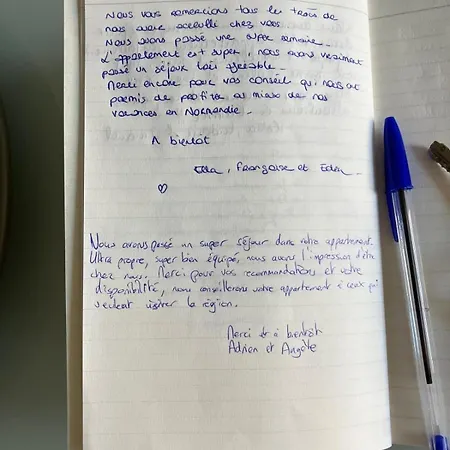 Nous vous remercions tous les trois de
nous avoir accueilli chez vous.
Nous avons passé une super semaine.
L'appartement est super, nous avons vraiment
passé un séjour très agréable.
Merci encore pour vos conseil qui nous ont
permis de profiter au mieux de nos
vacances en Normandie.
A bientôt
Françoise et Eden
♡
Nous avons passé un super séjour dans votre appartement.
Ultra propre, super bien équipé, nous avons l'impression d'être
chez nous. Merci pour vos recommandations et votre
disponibilité, nous conseillerons votre appartement à ceux qui
veulent visiter la région.
Merci et à bientôt
Adrien et Angèle